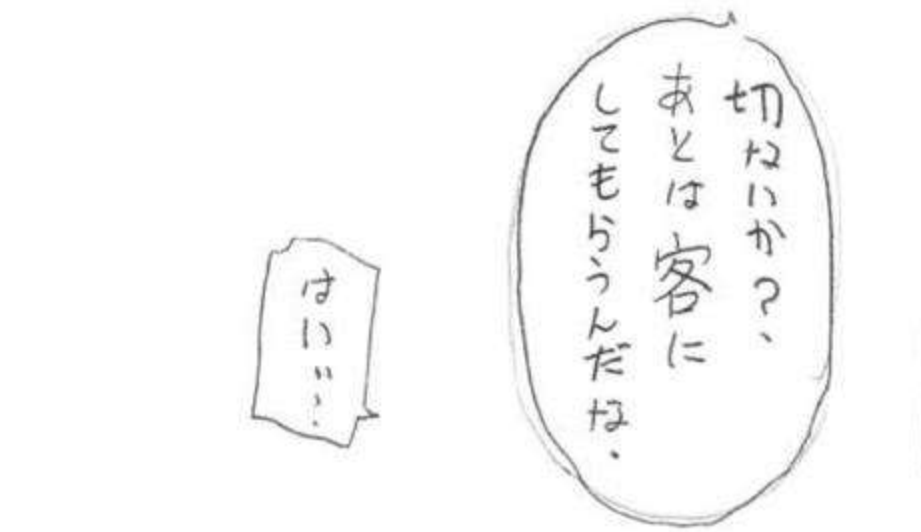 切ないか？、
あとは客に
してもらうんだな．
はいぃ、．